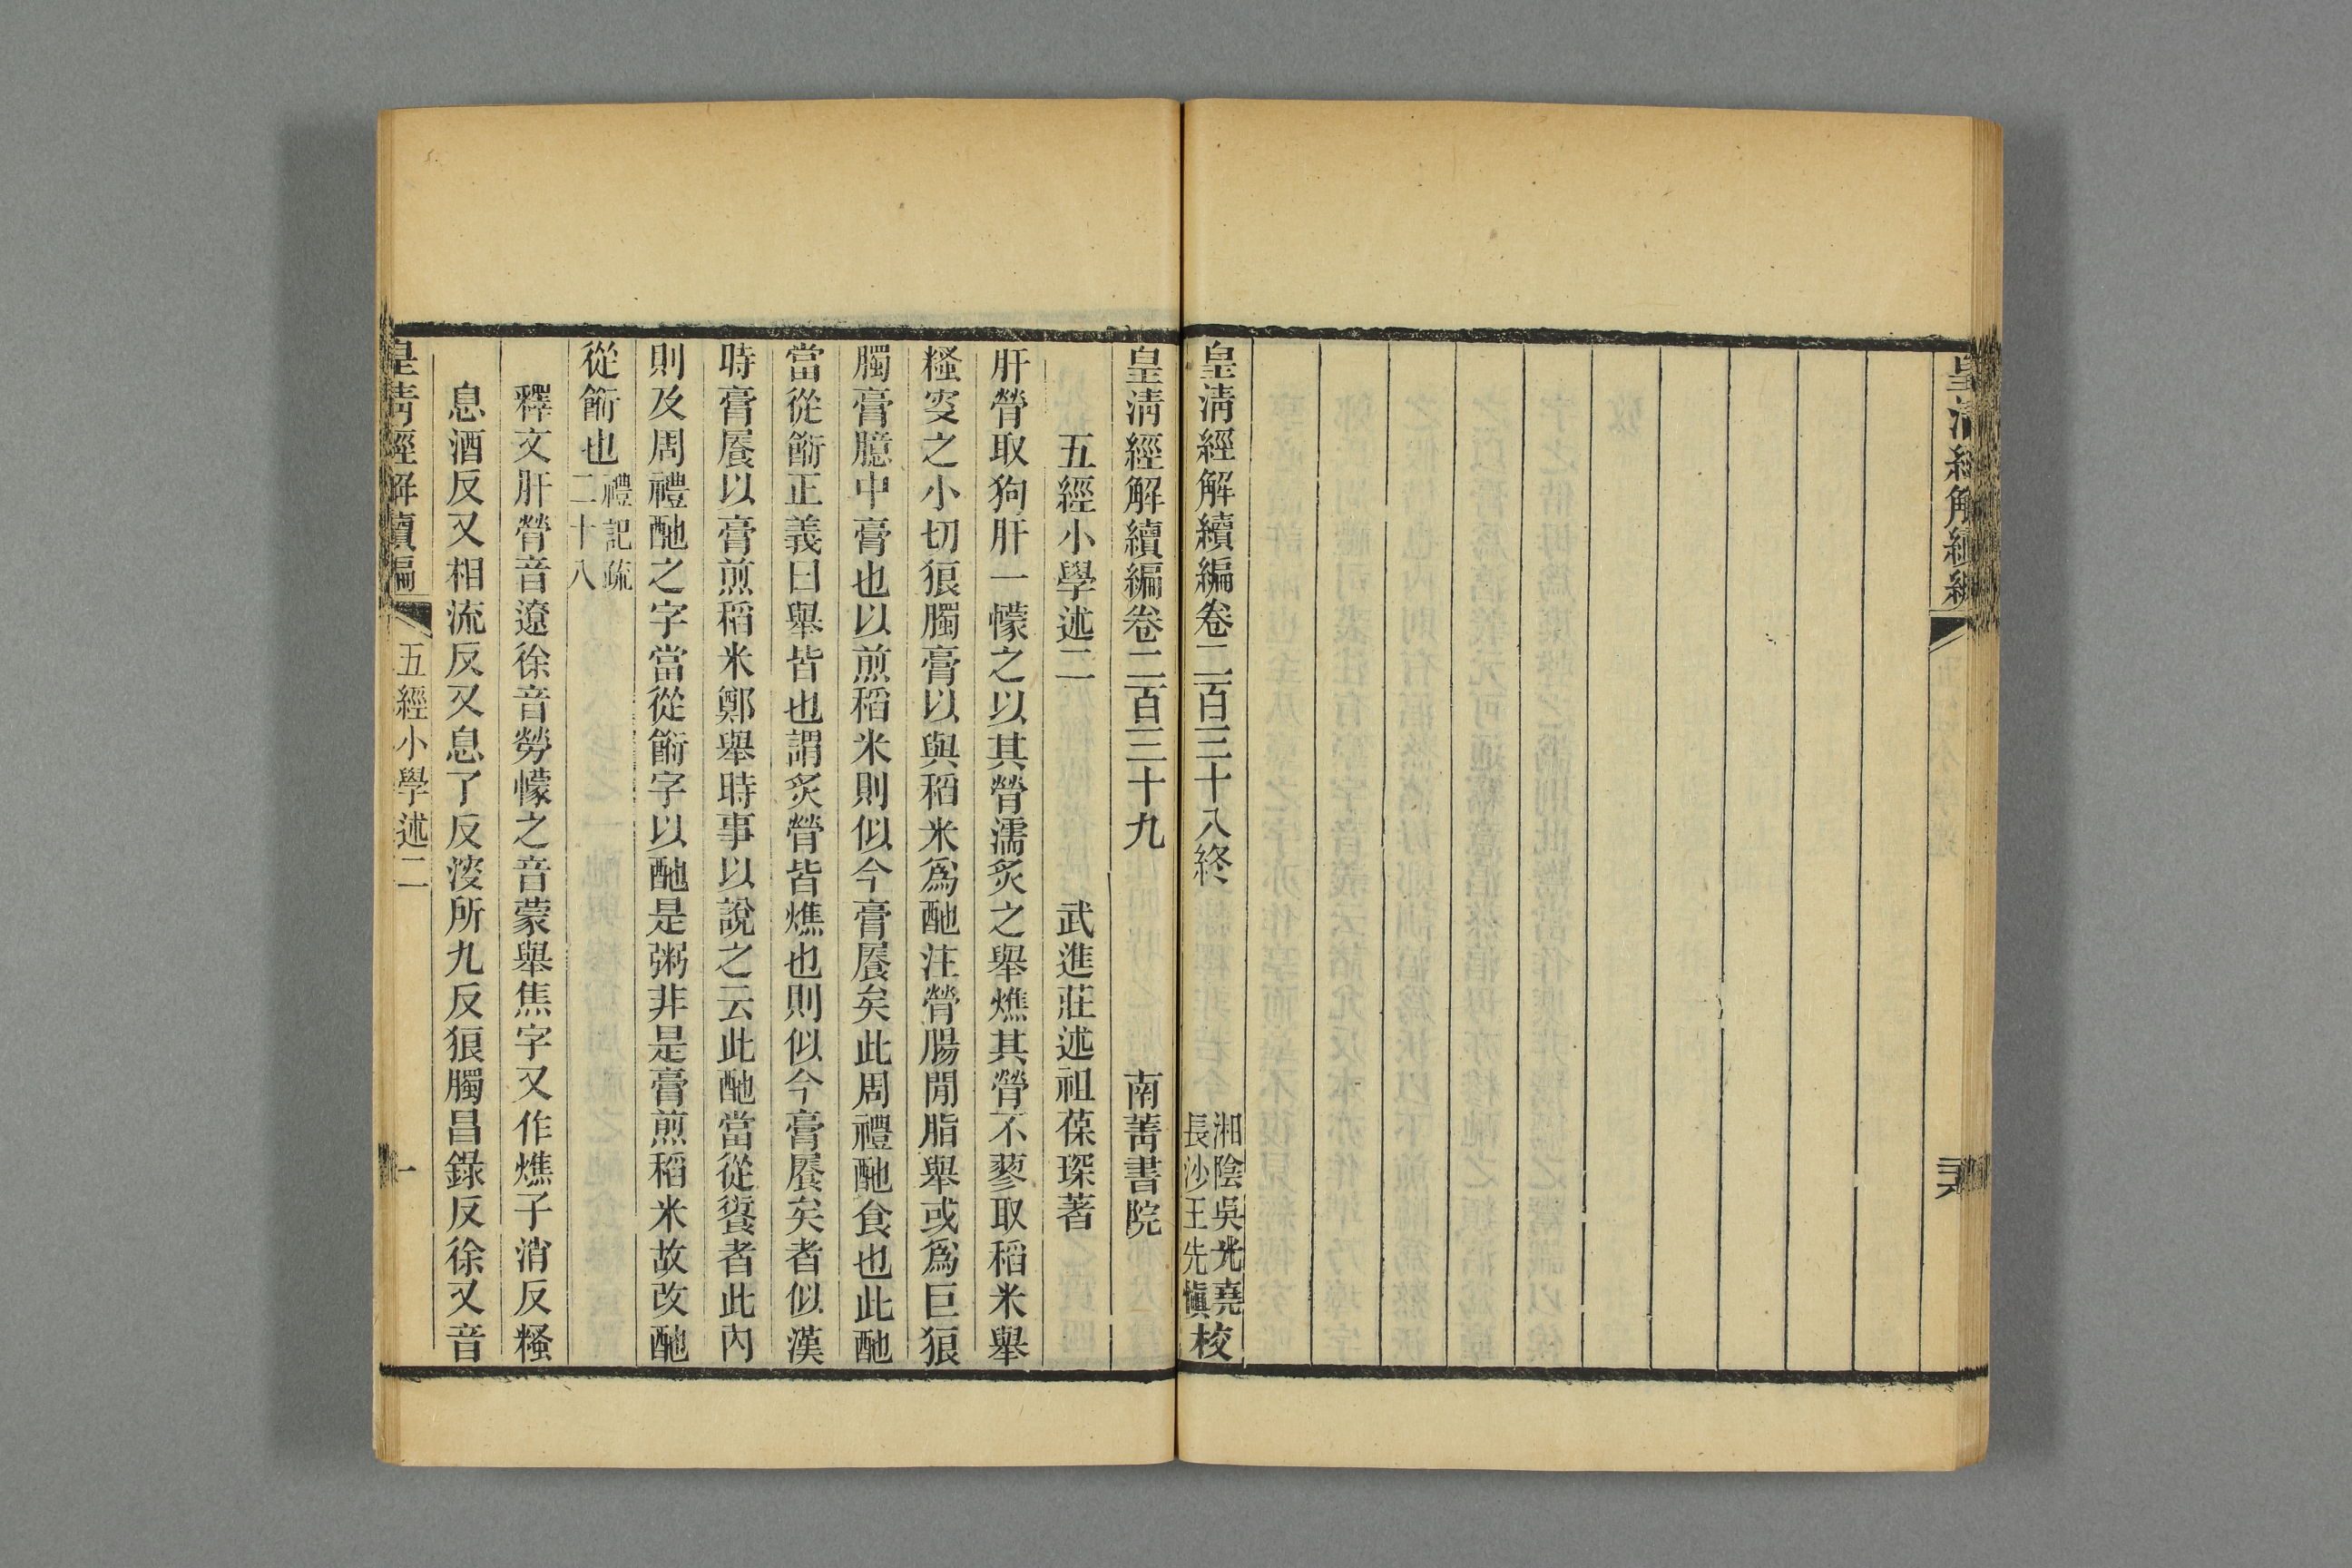 皇清經解續編
皇清經解續編卷二百三十八終
湘陰吳光堯
長沙王先愼
校
皇清經解續編卷二百三十九 南菁書院
五經小學述二 武進莊述祖葆琛著
肝膋取狗肝一幪之以其膋濡炙之舉燋其膋不蓼取稻米舉
糔溲之小切狼臅膏以與稻米爲酏注膋腸閒脂舉或爲巨狼
臅膏臆中膏也以煎稻米則似今膏𩞇矣此周禮酏食也此酏
當從餰正義曰舉皆也謂炙膋皆燋也則似今膏𩞇矣者似漢
時膏𩞇以膏煎稻米鄭舉時事以說之云此酏當從餰者此內
則及周禮酏之字當從餰字以酏是粥非是膏煎稻米故改酏
從餰也
禮記疏
二十八
釋文肝膋音遼徐音勞幪之音蒙舉焦字又作燋子消反糔
息酒反又相流反又息了反溲所九反狼臅昌錄反徐又音
皇清經解續編 五經小學述二 一